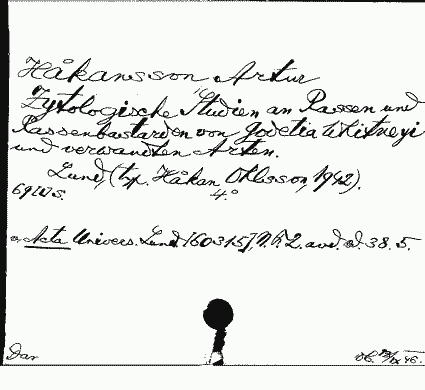 Håkansson Artur
Zytologische Studien an Rassen und
Rassenbastarden von Godetia Whitneyi
und verwandten Arten.
Lund, (typ. Håkan Ohlsson, 1942).
69 s. 4:o
Acta Univers. Lund. [60315], N. F. 2. avd. Bd. 38. 5.
Dav
46.